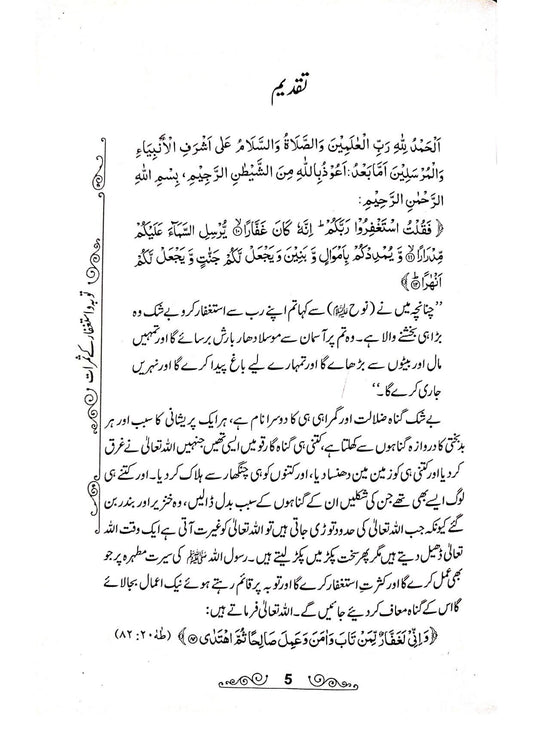 تقدیم
اَلْحَمْدُ لِلّٰهِ رَبِّ الْعٰلَمِيْنَ وَالصَّلَاةُ وَالسَّلَامُ عَلٰى اَشْرَفِ الْاَنْبِيَاءِ
وَالْمُرْسَلِيْنَ اَمَّا بَعْدُ: اَعُوْذُ بِاللّٰهِ مِنَ الشَّيْطٰنِ الرَّجِيْمِ، بِسْمِ اللّٰهِ
الرَّحْمٰنِ الرَّحِيْمِ:
﴿ فَقُلْتُ اسْتَغْفِرُوْا رَبَّكُمْ ؕ اِنَّهٗ كَانَ غَفَّارًا ۙ۝۱۰ يُّرْسِلِ السَّمَآءَ عَلَيْكُمْ
مِّدْرَارًا ۙ۝۱۱ وَّ يُمْدِدْكُمْ بِاَمْوَالٍ وَّ بَنِيْنَ وَ يَجْعَلْ لَّكُمْ جَنّٰتٍ وَّ يَجْعَلْ لَّكُمْ
اَنْهٰرًا ؕ۝۱۲ ﴾
’’چنانچہ میں نے (نوح علیہ السلام) سے کہا تم اپنے رب سے استغفار کرو بے شک وہ
بڑا ہی بخشنے والا ہے۔ وہ تم پر آسمان سے موسلادھار بارش برسائے گا اور تمہیں
مال اور بیٹوں سے بڑھائے گا اور تمہارے لیے باغ پیدا کرے گا اور نہریں
جاری کرے گا۔‘‘
بے شک گناہ ضلالت اور گمراہی ہی کا دوسرا نام ہے، ہر ایک پریشانی کا سبب اور ہر
بدبختی کا دروازہ گناہوں سے کھلتا ہے، کتنی ہی گناہ گار قومیں ایسی تھیں جنہیں اللہ تعالیٰ نے غرق
کر دیا اور کتنی ہی کو زمین میں دھنسا دیا، اور کتنوں کو ہی چنگھار سے ہلاک کر دیا۔ اور کتنے ہی
لوگ ایسے بھی تھے جن کی شکلیں ان کے گناہوں کے سبب بدل ڈالیں، وہ خنزیر اور بندر بن
گئے کیونکہ جب اللہ تعالیٰ کی حدود توڑی جاتی ہیں تو اللہ تعالیٰ کو غیرت آتی ہے ایک وقت اللہ
تعالیٰ ڈھیل دیتے ہیں مگر پھر سخت پکڑ میں پکڑ لیتے ہیں۔ رسول اللہ ﷺ کی سیرت مطہرہ پر جو
بھی عمل کرے گا اور کثرتِ استغفار کرے گا اور توبہ پر قائم رہتے ہوئے نیک اعمال بجا لائے
گا اس کے گناہ معاف کر دیے جائیں گے۔ اللہ تعالیٰ فرماتے ہیں:
﴿ وَ اِنِّيْ لَغَفَّارٌ لِّمَنْ تَابَ وَ اٰمَنَ وَ عَمِلَ صَالِحًا ثُمَّ اهْتَدٰى ۝۸۲ ﴾ (طٰهٰ ۲۰: ۸۲)
توبہ و استغفار کے ثمرات
5